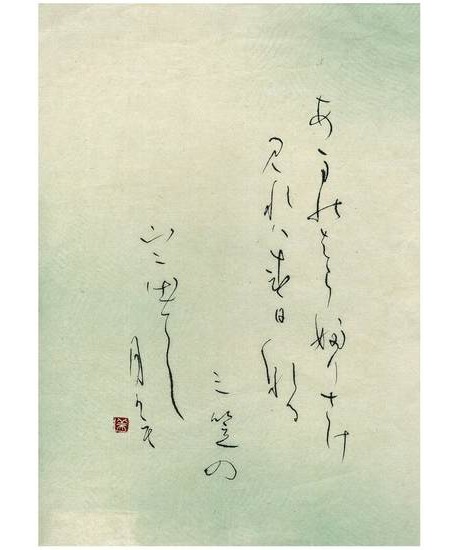 あまのはら婦りさけ
見れハ春日なる
三笠の
山二出でし
月かも